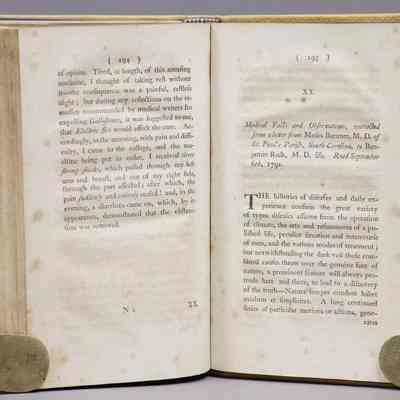 ( 194 )
of opium. Tired, at length, of this amusing
medicine, I thought of taking rest without
it; the consequence was a painful, restless
night; but during my reflections on the re-
medies recommended by medical writers for
expelling Gallstones, it was suggested to me,
that Electric fire would effect the cure. Ac-
cordingly, in the morning, with pain and diffi-
culty, I came to the college, and the ma-
chine being put to order, I received
strong shocks, which passed through my
and breast, and out of my right side,
through the part affected; after which, the
pain suddenly and entirely ceased! and, in the
evening, a diarrhœa came on, which, by it's
appearance, demonstrated that the obstruc-
tion was removed.
N 2
XX.
( 195 )
XX.
Medical Facts and Observations, extracted
from a letter from Moses Bartram, M. D. of
St. Paul's Parish, South-Carolina, to Ben-
jamin Rush, M. D. &c. Read September
6th, 1791.
THE histories of diseases and daily ex-
perience confirm the great variety
of types diseases assume from the operation
of climate, the arts and refinements of a po-
lished life, peculiar situation and intercourse
of men, and the various modes of treatment;
but notwithstanding the dark veil these com-
bined causes throw over the genuine face of
nature, a prominent feature will always pro-
trude here and there, to lead to a discovery
of the truth—Natura semper eundem habet
modum et simplicem. A long continued
series of particular motions or actions, gene-
rates